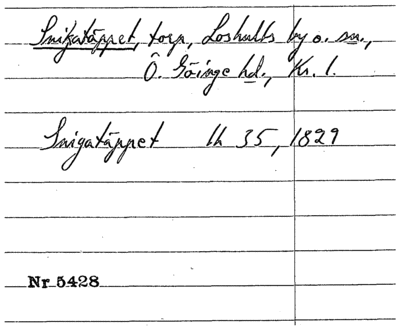 Snikatäppet, torp, Loshults by o. sn.,
Ö. Göinge hd., Kr. l.
Snigatäppet lh 35, 1829
Nr 5428